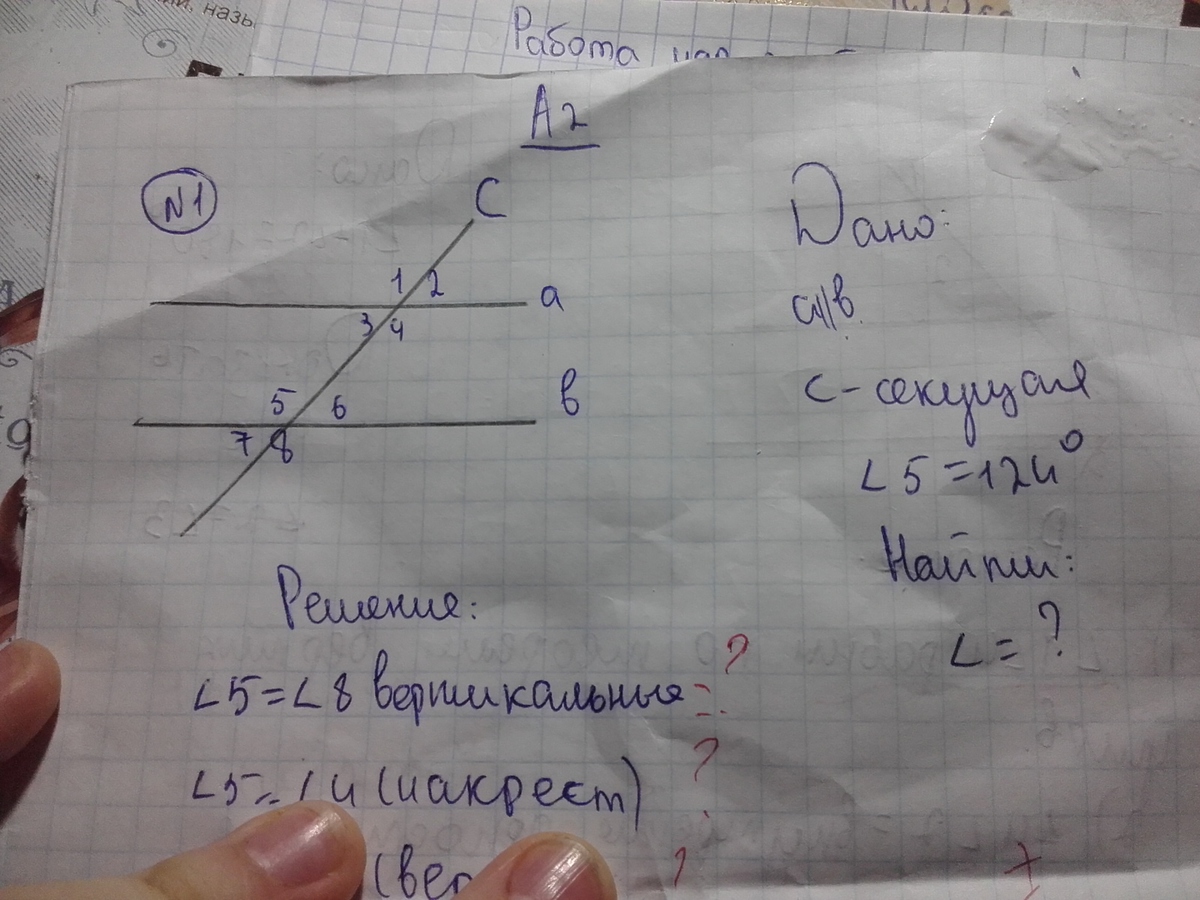 назь
Работа
А2
N1
C
1 2
a
3 4
5 6
в
7 8
Дано:
a||в
C - секущая
∠5 = 124°
Найти:
∠ = ?
Решение:
∠5 = ∠8 вертикальные = ?
∠5 = ∠4 (накрест) ?
(вер ?